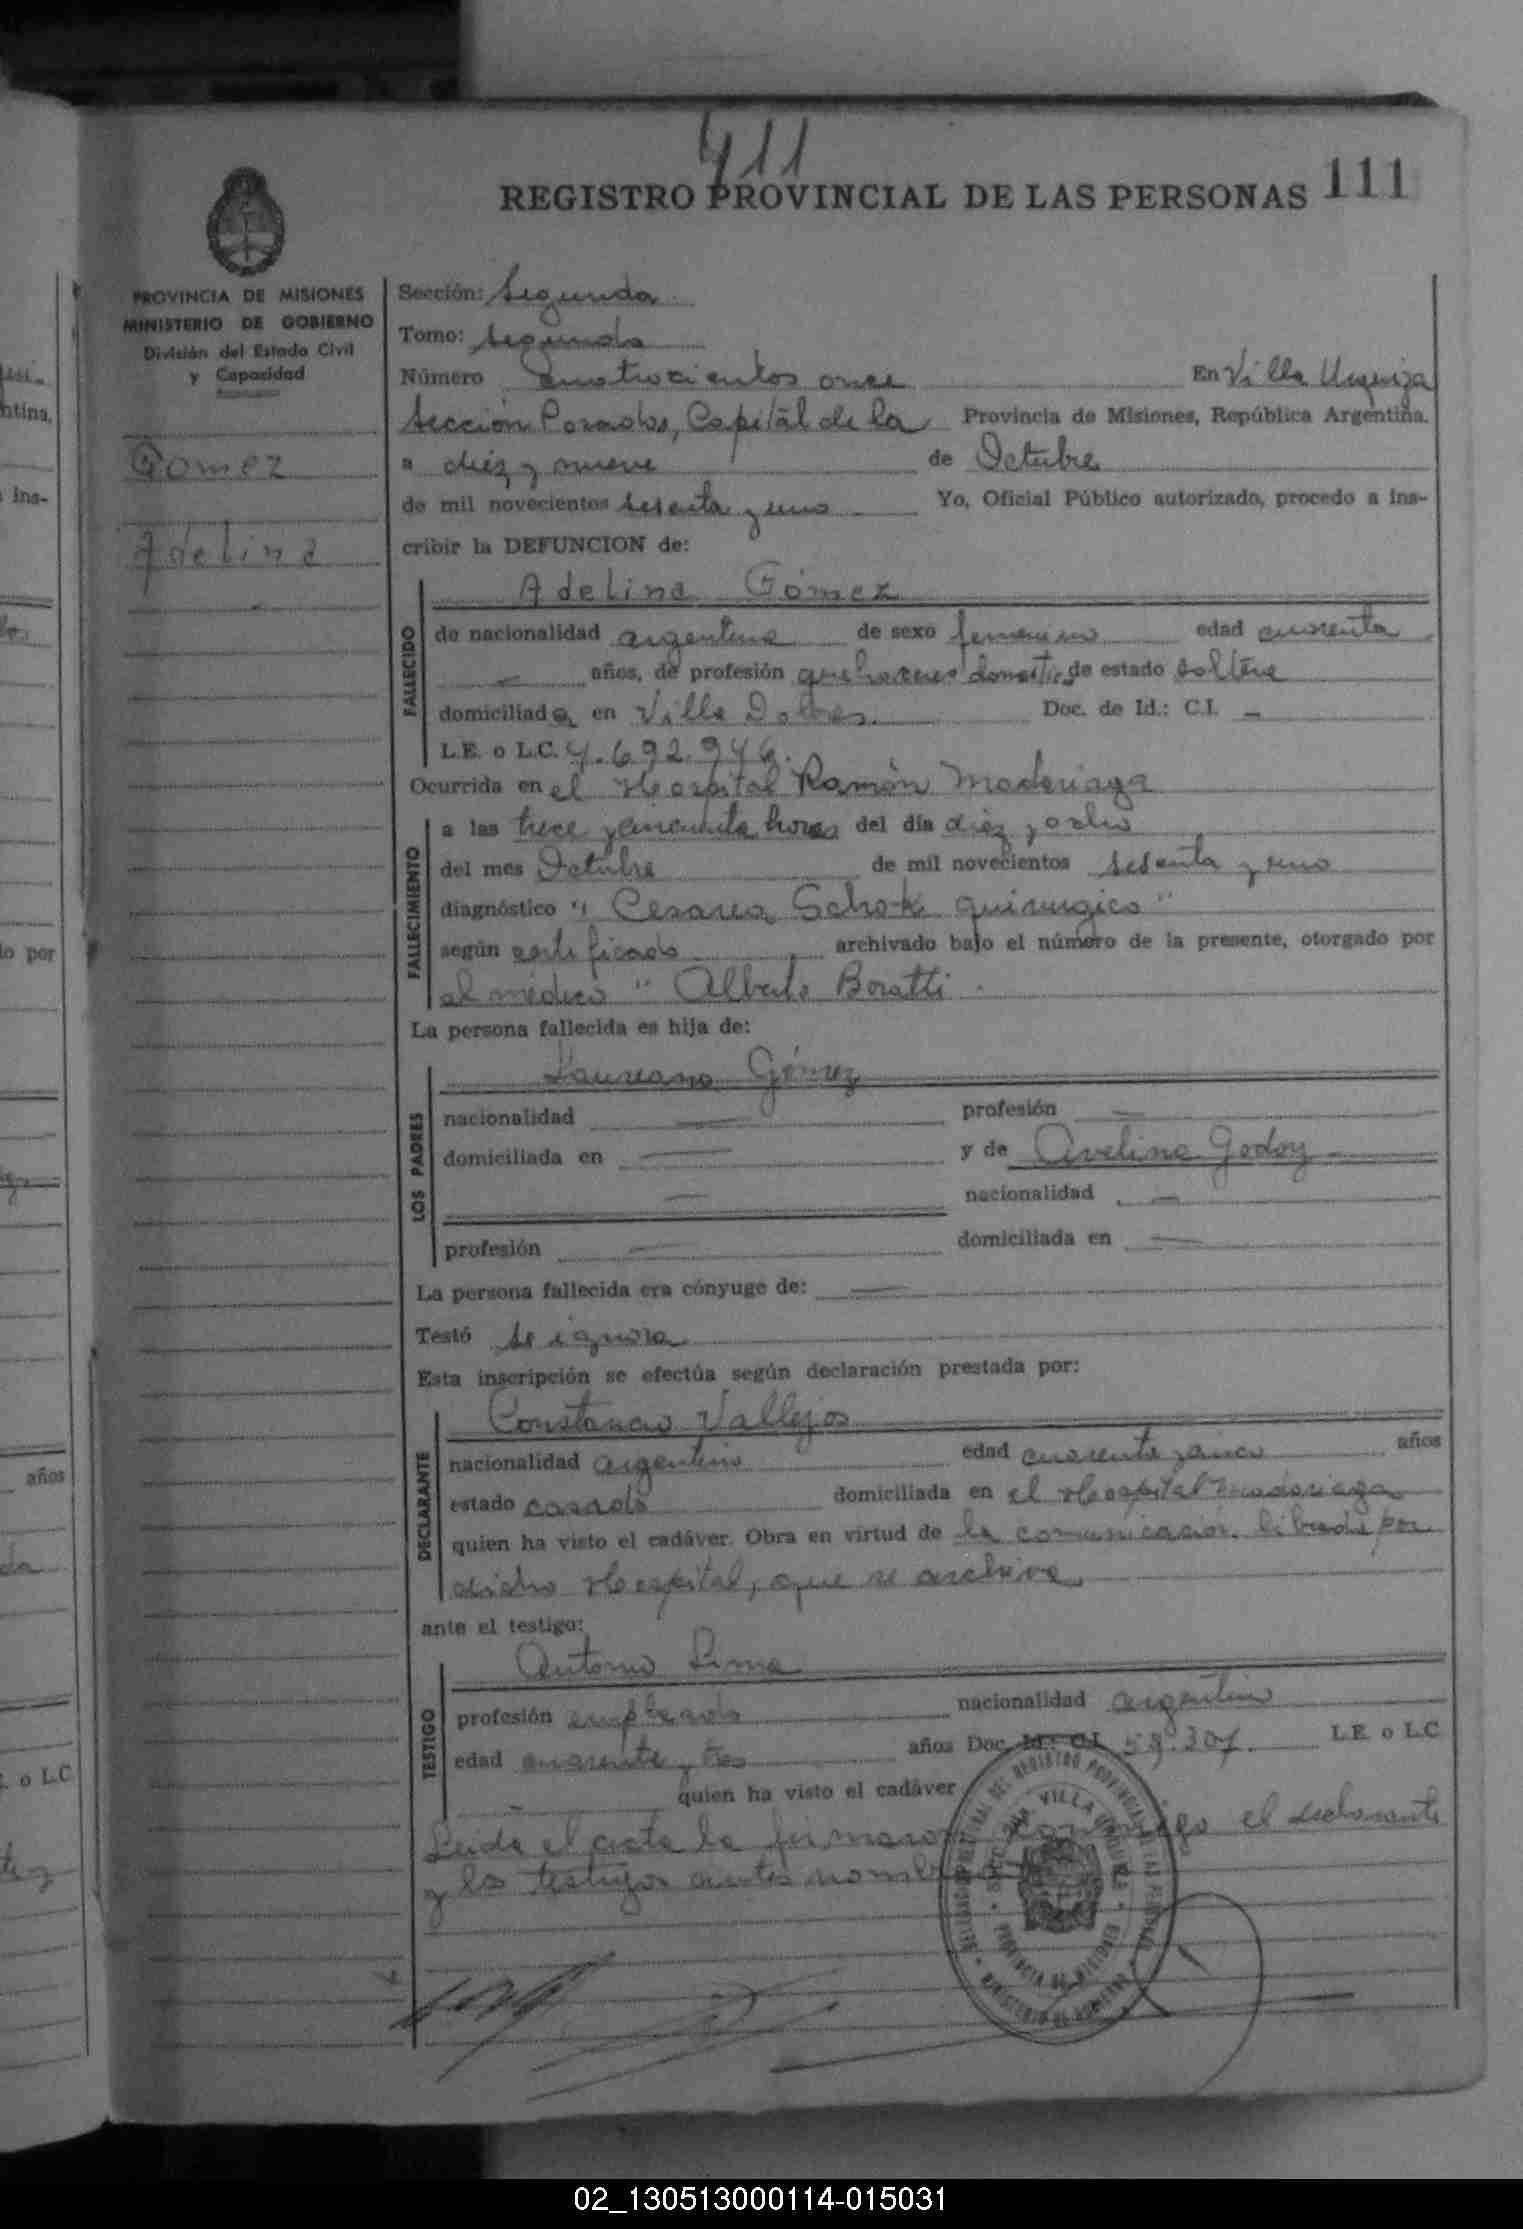 411
REGISTRO PROVINCIAL DE LAS PERSONAS 111
PROVINCIA DE MISIONES
MINISTERIO DE GOBIERNO
División del Estado Civil
y Capacidad
Gomez
Adelina
Sección: Segunda
Tomo: Segundo
Número cuatrocientos once En Villa Urquiza
Sección Posadas, Capital de la Provincia de Misiones, República Argentina.
a diez y nueve de Octubre
de mil novecientos sesenta y uno Yo, Oficial Público autorizado, procedo a ins-
cribir la DEFUNCION de:
Adelina Gómez
FALLECIDO
de nacionalidad argentina de sexo femenino edad cuarenta
— años, de profesión quehaceres domésticos de estado soltera
domiciliada en Villa Dolores. Doc. de Id.: C.I. —
L.E. o L.C. 4.692.946.
Ocurrida en el Hospital Ramón Madariaga
FALLECIMIENTO
a las trece y cincuenta horas del día diez y ocho
del mes Octubre de mil novecientos sesenta y uno
diagnóstico "Cesarea Schok quirurgico"
según certificado archivado bajo el número de la presente, otorgado por
el médico " Alberto Boratti.
La persona fallecida es hija de:
Laureano Gómez
LOS PADRES
nacionalidad — profesión —
domiciliada en — y de Avelina Godoy
— nacionalidad —
profesión — domiciliada en —
La persona fallecida era cónyuge de: —
Testó se ignora
Esta inscripción se efectúa según declaración prestada por:
Constancio Vallejos
DECLARANTE
nacionalidad argentino edad cuarenta y cinco años
estado casado domiciliada en el Hospital Madariaga
quien ha visto el cadáver. Obra en virtud de la comunicación librada por
dicho Hospital, que se archiva
ante el testigo:
Antonio Lima
TESTIGO
profesión empleado nacionalidad argentino
edad cuarenta y tres años Doc. Id.: C.I. 59.307. L.E. o L.C.
— quien ha visto el cadáver
Leida el acta la firmaron conmigo el declarante
y los testigos antes
DELEGACION SECCIONAL DEL REGISTRO PROVINCIAL DE LAS PERSONAS
SECC. 2da. VILLA URQUIZA
PROVINCIA DE MISIONES
MINISTERIO DE GOBIERNO
02_130513000114-015031